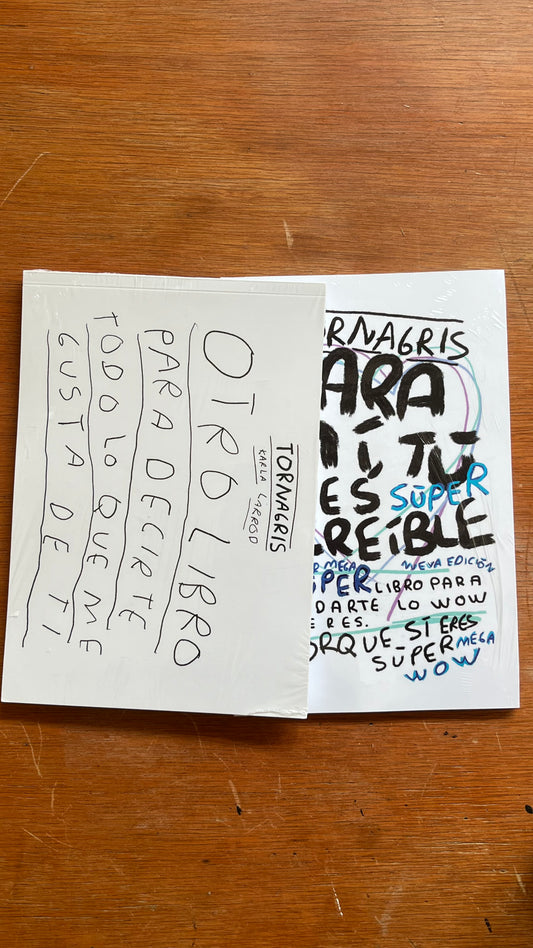 TORNAGRIS
KARLA LARROD
OTRO LIBRO
PARA DECIRTE
TODO LO QUE ME
GUSTA DE TI
RNAGRIS
ARA
Í, TÚ
ES SÚPER
REÍBLE
R MEGA NUEVA EDICIÓN
ÚPER LIBRO PARA
DARTE LO WOW
E RES.
ORQUE SÍ ERES
SÚPER MEGA
WOW